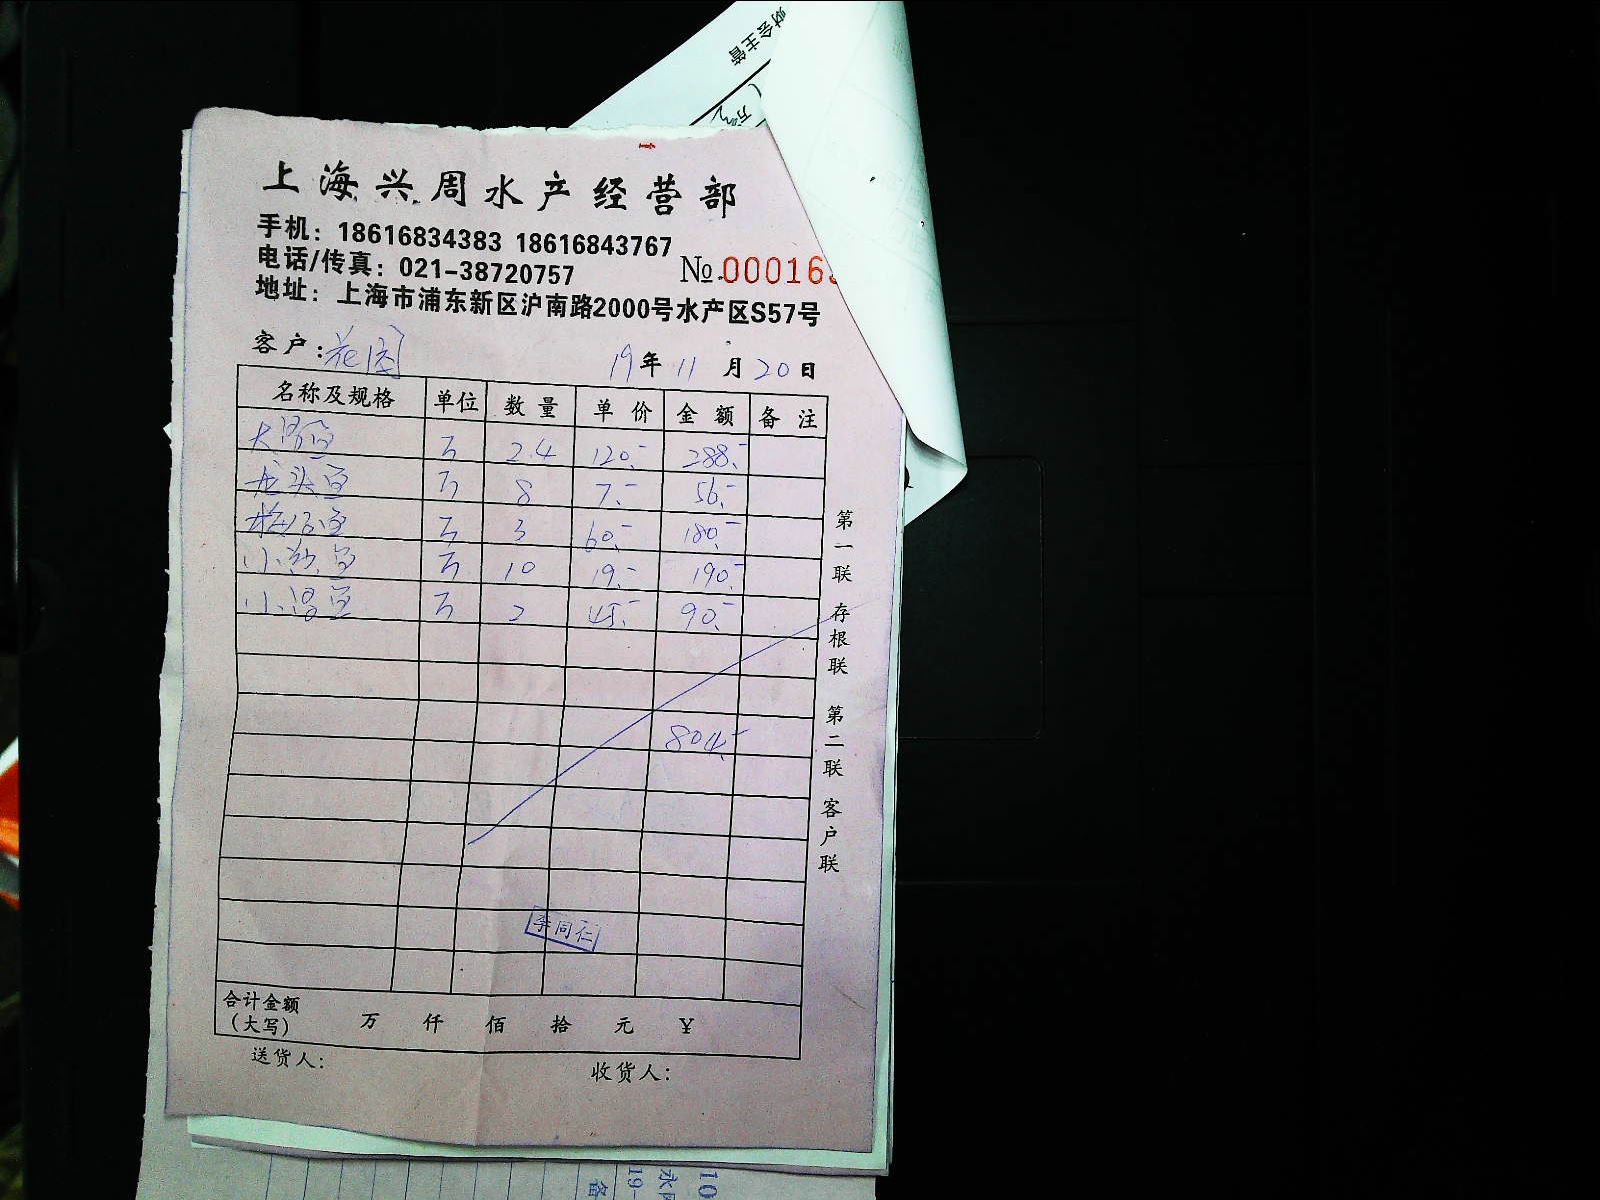 财会主管
上海兴周水产经营部
手机：18616834383 18616843767
电话/传真：021-38720757
№.00016
地址：上海市浦东新区沪南路2000号水产区S57号
客户：花园 19年11月20日
名称及规格 单位 数量 单价 金额 备注
大 鱼 斤 2.4 120.- 288.-
龙头鱼 斤 8 7.- 56.-
斤 3 60.- 180.-
小 鱼 斤 10 19.- 190.-
小 鱼 斤 2 45.- 90.-
804.-
李同仁
合计金额
（大写） 万 仟 佰 拾 元 ¥
送货人： 收货人：
第一联 存根联 第二联 客户联